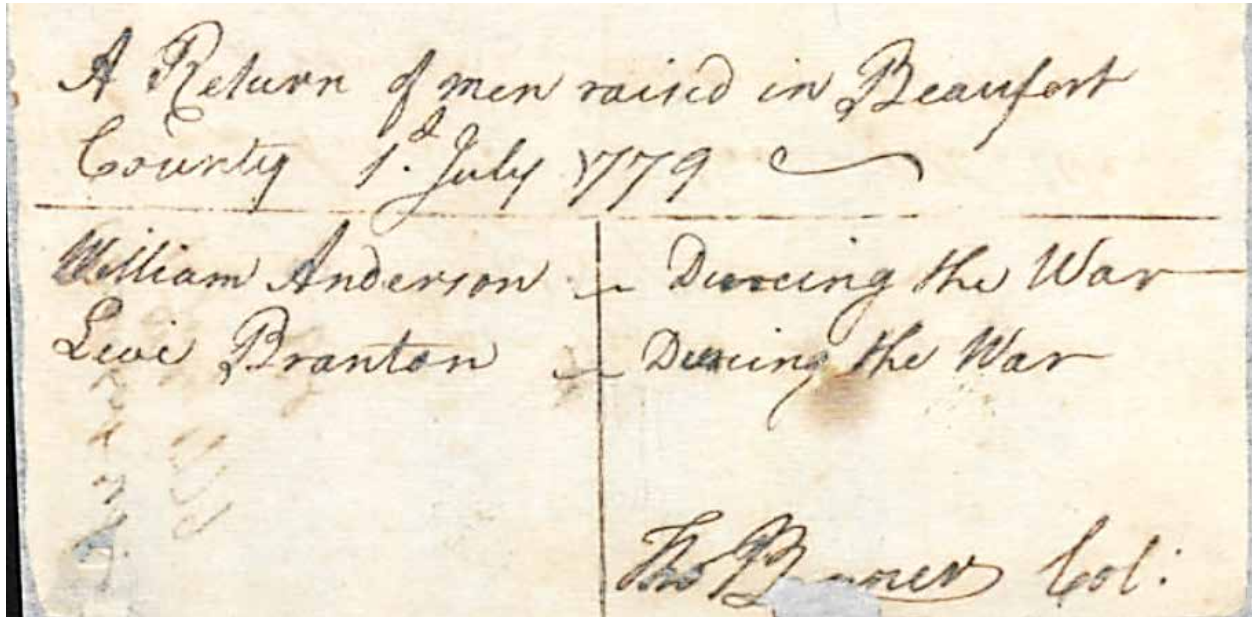 A Return of men raised in Beaufort
County 1.d July 1779
William Anderson During the War
Levi Branton During the War
Tho Bonner Col: